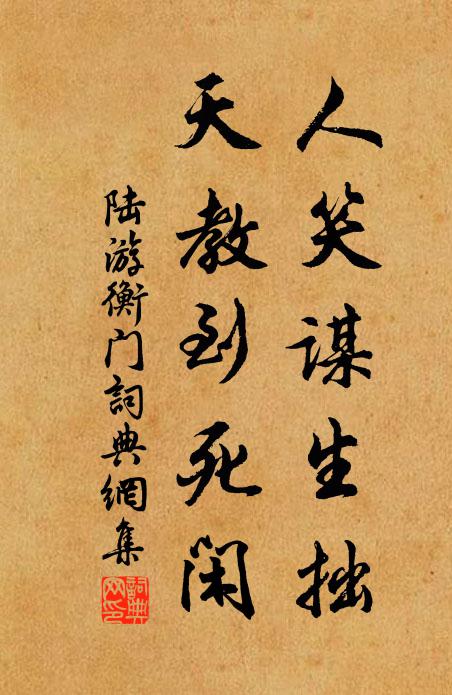 人笑谋生拙
天教到死闲
陆游衡门詞典網集
詞典網印